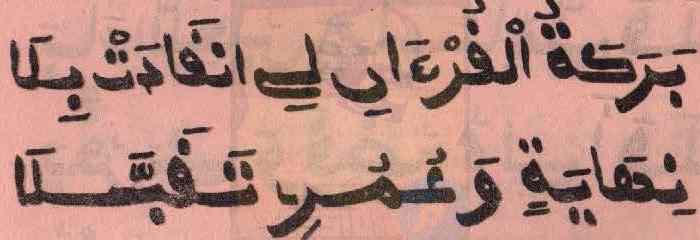 بَرَكَةُ الْقُرْءَانِ لِي انقَادَتْ بِلَا
نِهَايَةٍ وَعُمُرِ تَقَبَّلَا